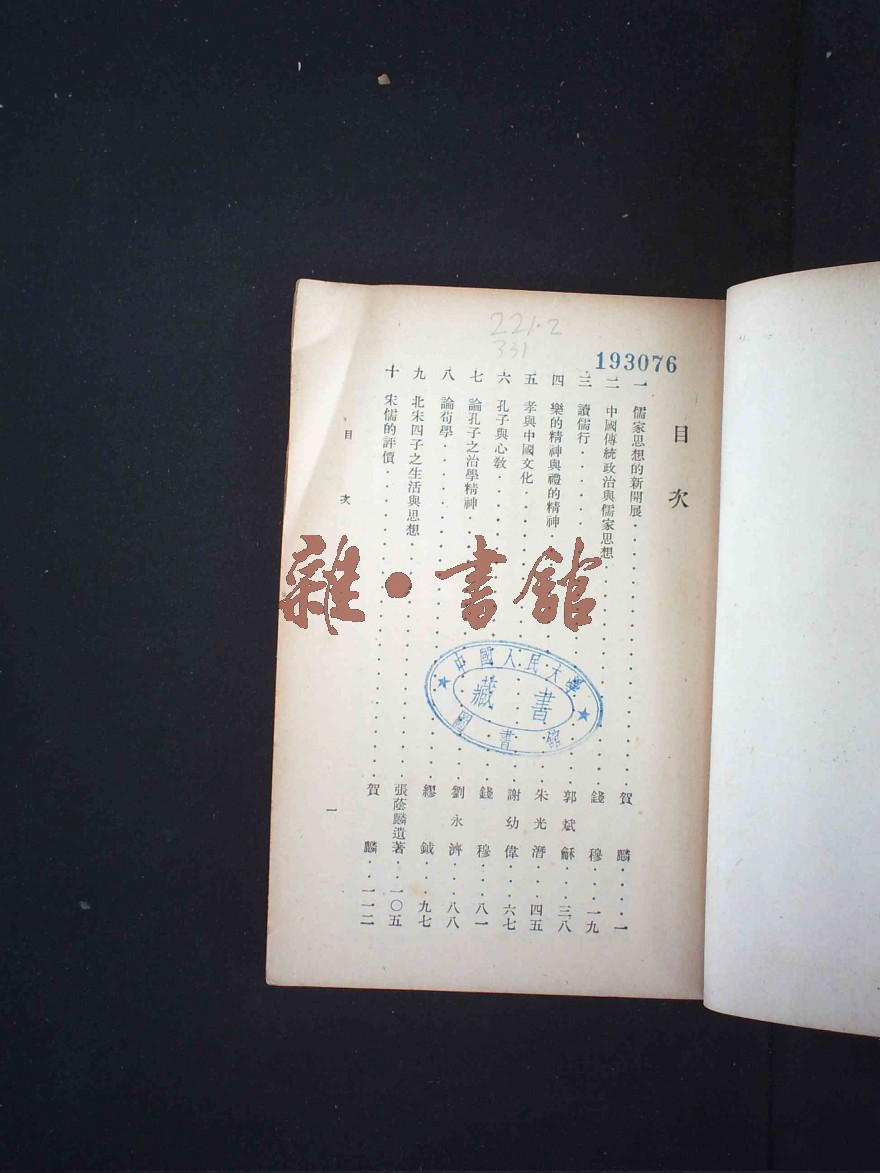 221.2
331
193076
目次
一 儒家思想的新開展 賀麟 一
二 中國傳統政治與儒家思想 錢穆 一九
三 讀儒行 郭斌龢 三八
四 樂的精神與禮的精神 朱光潛 四五
五 孝與中國文化 謝幼偉 六七
六 孔子與心教 錢穆 八一
七 論孔子之治學精神 劉永濟 八八
八 論荀學 繆鉞 九七
九 北宋四子之生活與思想 張蔭麟遺著 一〇五
十 宋儒的評價 賀麟 一一二
目次
一
雜·書館
中國人民大學
藏書
圖書館